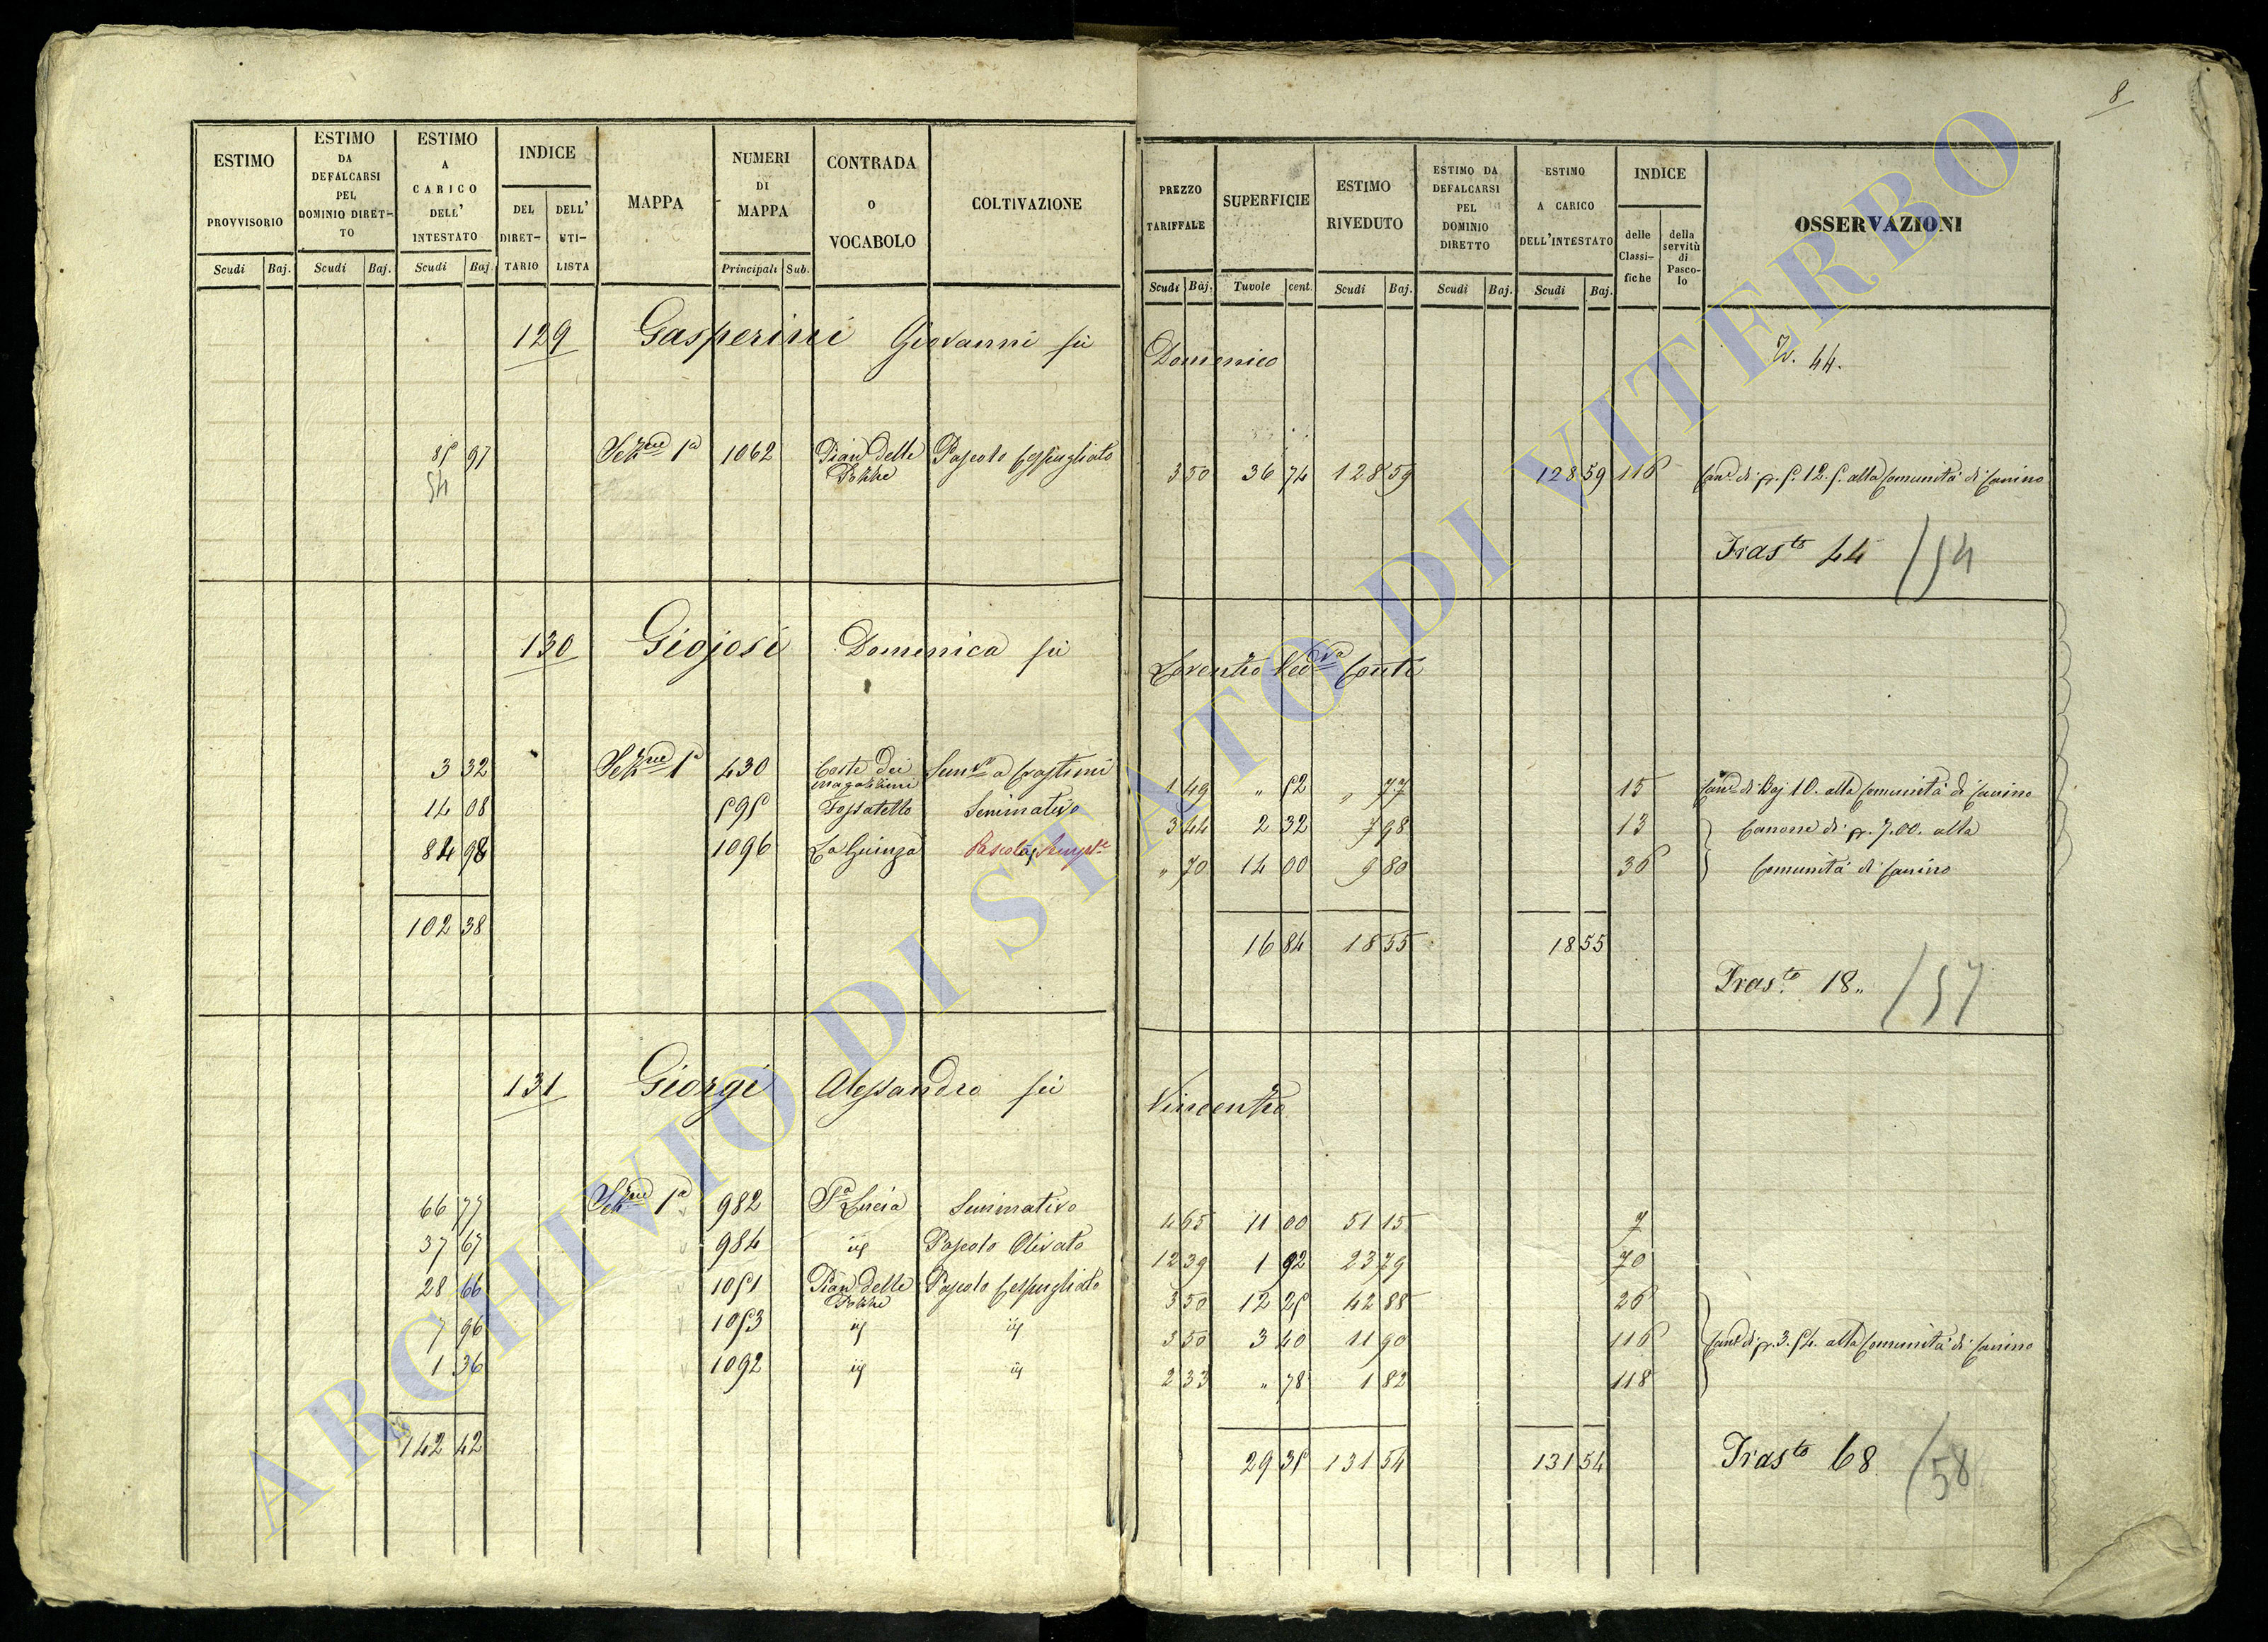 8
ESTIMO PROVVISORIO Scudi Baj.
ESTIMO DA DEFALCARSI PEL DOMINIO DIRETTO Scudi Baj.
ESTIMO A CARICO DELL' INTESTATO Scudi Baj
INDICE DEL DIRETTARIO DELL' UTILISTA
MAPPA
NUMERI DI MAPPA Principali Sub.
CONTRADA o VOCABOLO
COLTIVAZIONE
PREZZO TARIFFALE Scudi Baj.
SUPERFICIE Tavole cent.
ESTIMO RIVEDUTO Scudi Baj.
ESTIMO DA DEFALCARSI PEL DOMINIO DIRETTO Scudi Baj.
ESTIMO A CARICO DELL'INTESTATO Scudi Baj.
INDICE delle Classifiche della servitù di Pascolo
OSSERVAZIONI
129 Gasperini Giovanni fù Domenico
44.
85 97 Sez.ne 1a 1062 Pian delle Pozze Pascolo Cespugliato 3 50 36 74 128 59 128 59 116 Can.e di p. 5. 12. 5. alla Comunità di Canino
54
Tras.to 44 /54
130 Giojosi Domenica fù Lorenzo Ved.va Conti
3 32 Sez.ne 1a 430 Coste dei magazzini Sem.vo a Grastini 1 49 " 52 " 77 15 Can.e di Baj 10. alla Comunità di Canino
14 08 595 Fossatello Seminativo 3 44 2 32 7 98 13 Canone di p. 7.00. alla
84 98 1096 La Guinza Pascolo " 70 14 00 9 80 36 Comunità di Canino
102 38 16 84 18 55 18 55
Tras.to 18.. /57
131 Giorgi Alessandro fù Vincenzo
66 77 Sez.ne 1a 982 S.a Lucia Seminativo 4 65 11 00 51 15 7
37 67 984 id Pascolo Olivato 12 39 1 92 23 79 70
28 66 1051 Pian delle Pozze Pascolo Cespugliato 3 50 12 25 42 88 26
7 96 1053 id id 3 50 3 40 11 90 116 Can.e di p. 3. 54. alla Comunità di Canino
1 36 1092 id id 2 33 " 78 1 82 118
142 42 29 35 131 54 131 54
Tras.to 68 /58
ARCHIVIO DI STATO DI VITERBO